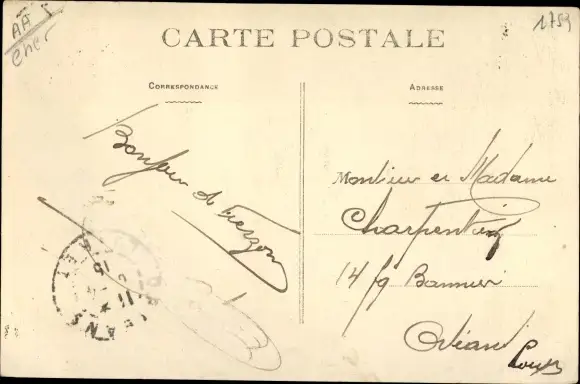 AA
Cher
1759
CARTE POSTALE
CORRESPONDANCE
ADRESSE
Bonjour de Vierzon
Monsieur et Madame
Charpentier
14 fg Bannier
Orléans